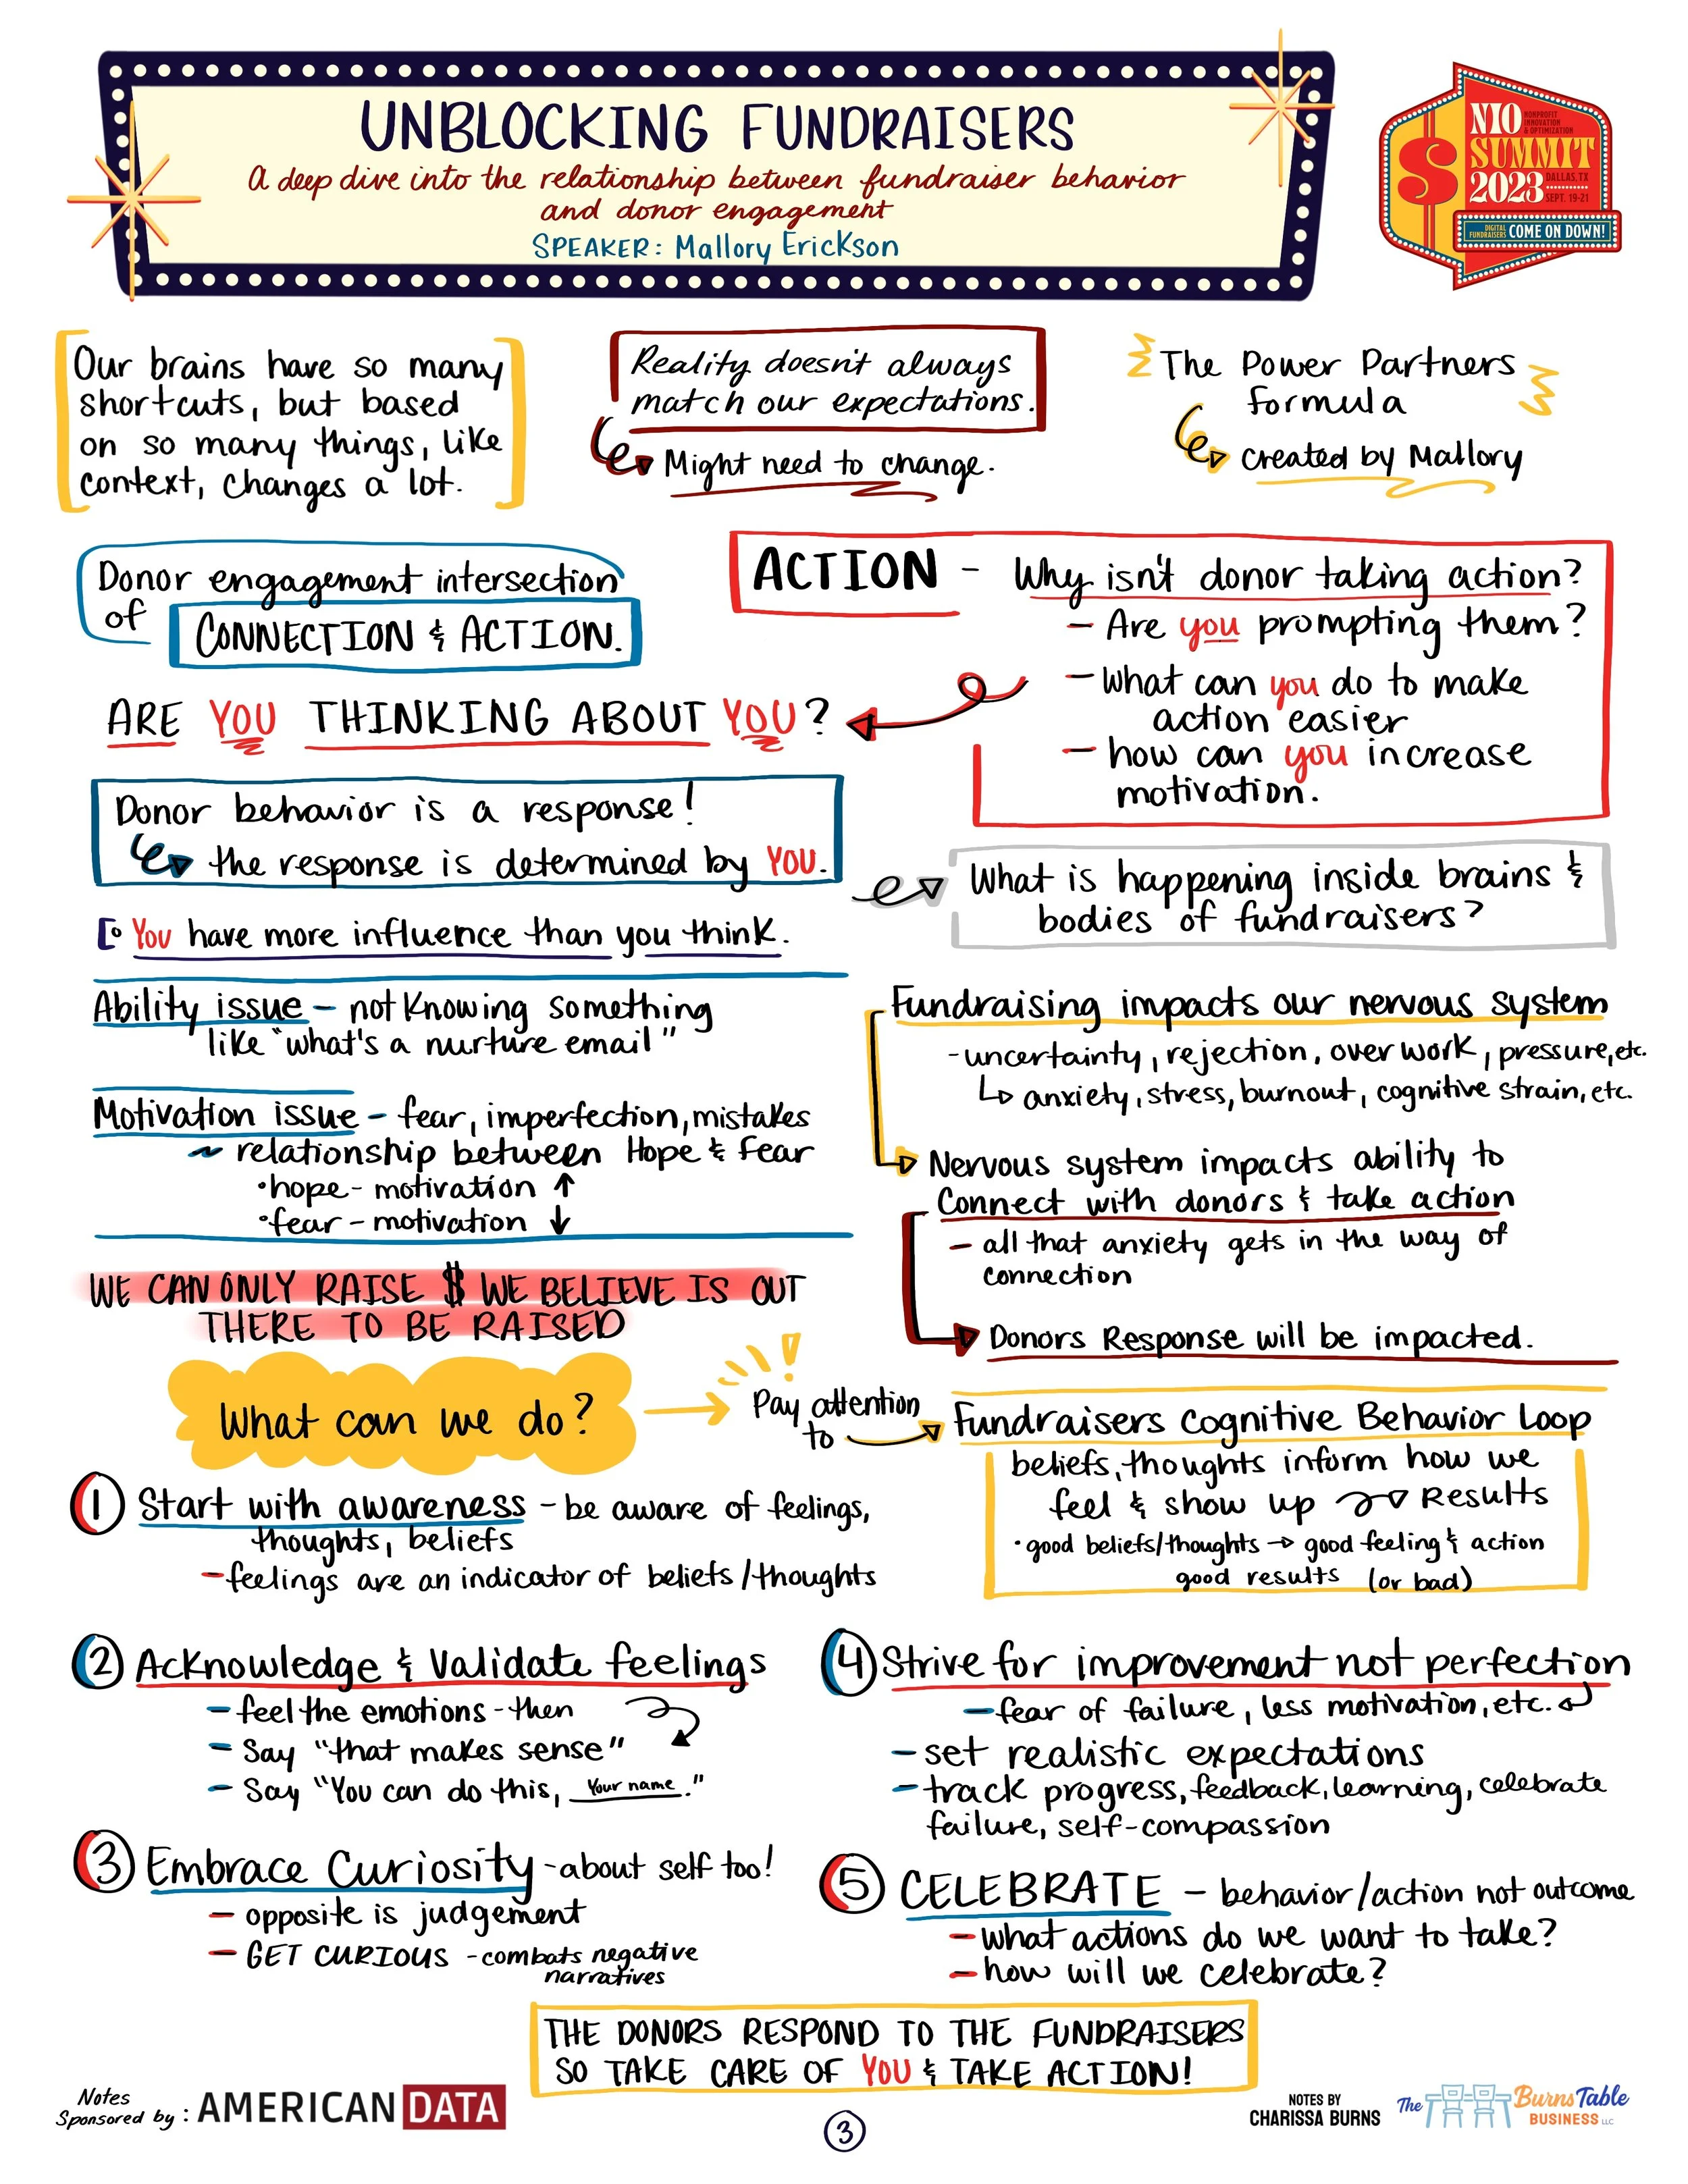 UNBLOCKING FUNDRAISERS
A deep dive into the relationship between fundraiser behavior
and donor engagement
SPEAKER: Mallory Erickson
NIO
NONPROFIT
INNOVATION
& OPTIMIZATION
SUMMIT
2023
DALLAS, TX
SEPT. 19-21
DIGITAL
FUNDRAISERS
COME ON DOWN!
Our brains have so many
shortcuts, but based
on so many things, like
context, changes a lot.
Reality doesn't always
match our expectations.
Might need to change.
The Power Partners
formula
created by Mallory
Donor engagement intersection
of
CONNECTION & ACTION.
ARE YOU THINKING ABOUT YOU?
ACTION - Why isn't donor taking action?
- Are you prompting them?
- What can you do to make
action easier
- how can you increase
motivation.
Donor behavior is a response!
the response is determined by YOU.
You have more influence than you think.
What is happening inside brains &
bodies of fundraisers?
Ability issue - not knowing something
like "what's a nurture email"
Motivation issue - fear, imperfection, mistakes
~ relationship between Hope & Fear
• hope - motivation ↑
• fear - motivation ↓
Fundraising impacts our nervous system
- uncertainty, rejection, over work, pressure, etc.
↳ anxiety, stress, burnout, cognitive strain, etc.
Nervous system impacts ability to
connect with donors & take action
- all that anxiety gets in the way of
connection
Donors Response will be impacted.
WE CAN ONLY RAISE $ WE BELIEVE IS OUT
THERE TO BE RAISED
What can we do?
Pay attention
to
Fundraisers Cognitive Behavior Loop
beliefs, thoughts inform how we
feel & show up → Results
• good beliefs/thoughts → good feeling & action
good results (or bad)
1 Start with awareness - be aware of feelings,
thoughts, beliefs
- feelings are an indicator of beliefs/thoughts
2 Acknowledge & Validate feelings
- feel the emotions - then
- Say "that makes sense"
- Say "You can do this, Your name."
3 Embrace Curiosity - about self too!
- opposite is judgement
- GET CURIOUS - combats negative
narratives
4 Strive for improvement not perfection
- fear of failure, less motivation, etc.
- set realistic expectations
- track progress, feedback, learning, celebrate
failure, self-compassion
5 CELEBRATE - behavior/action not outcome
- what actions do we want to take?
- how will we celebrate?
THE DONORS RESPOND TO THE FUNDRAISERS
SO TAKE CARE OF YOU & TAKE ACTION!
Notes
Sponsored by: AMERICAN DATA
3
NOTES BY
CHARISSA BURNS
The Burns Table
BUSINESS LLC